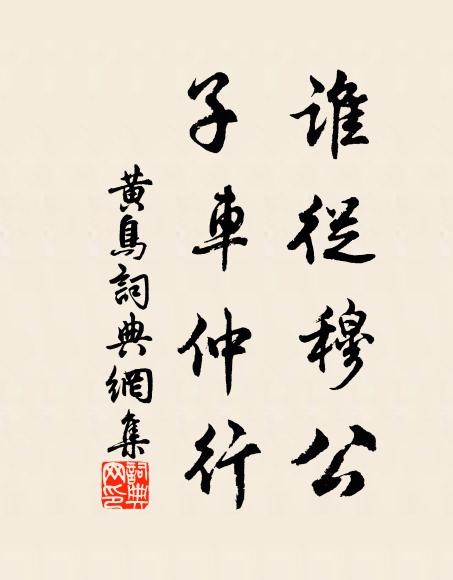 誰從穆公
子車仲行
黃鳥詞典網集
詞典網印